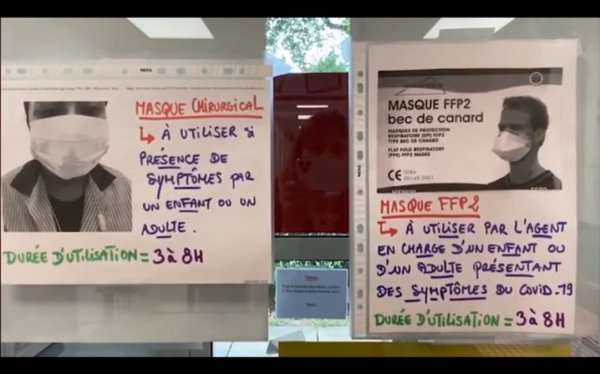 MASQUE CHIRURGICAL
↳ À UTILISER SI
PRÉSENCE DE
SYMPTÔMES PAR
UN ENFANT OU UN
ADULTE.
DURÉE D'UTILISATION = 3 à 8H
MASQUE FFP2
bec de canard
MASQUES DE PROTECTION
RESPIRATOIRE (EPI) FFP2
TYPE BEC DE CANARD
FLAT FOLD RESPIRATORY
(PPE) FFP2 MASKS
CE
MASQUE FFP2
↳ À UTILISER PAR L'AGENT
EN CHARGE D'UN ENFANT OU
D'UN ADULTE PRÉSENTANT
DES SYMPTÔMES DU COVID-19
DURÉE D'UTILISATION = 3 à 8H